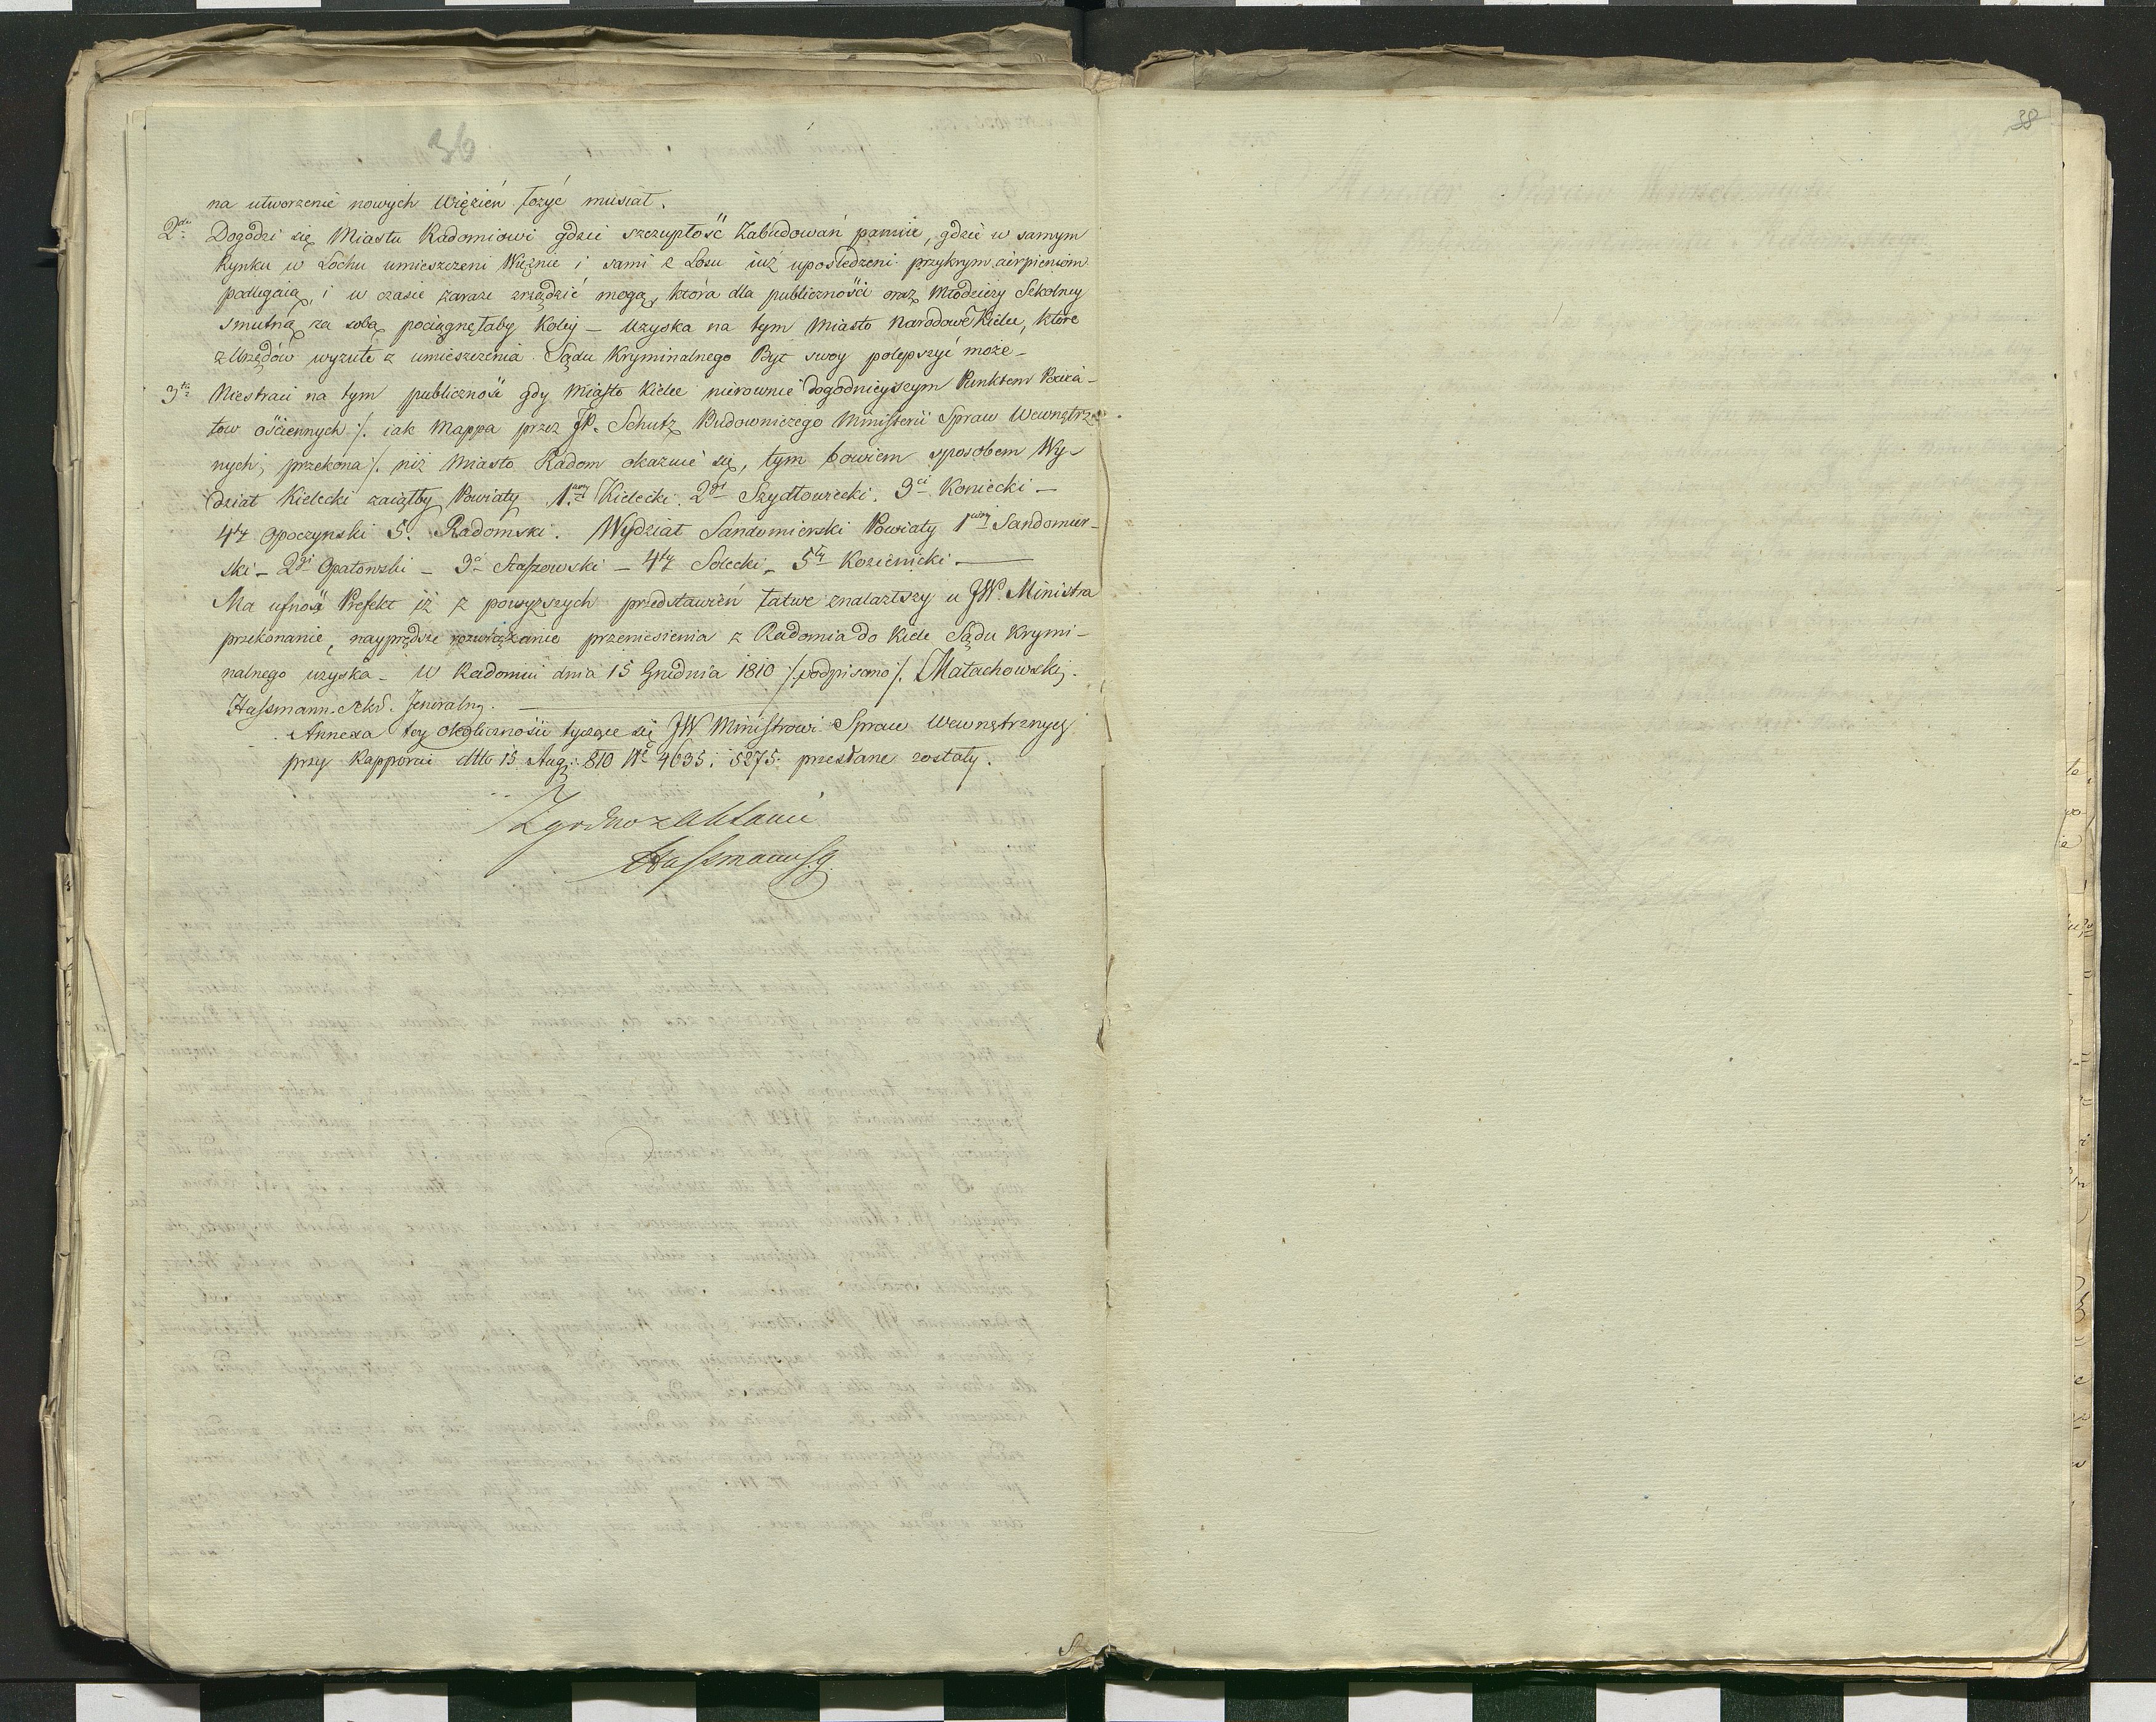 36
38
na utworzenie nowych Więzień łożyć musiał.
2do Dogodzi się Miastu Radomiowi gdzie szczupłość Zabudowań panuie, gdzie w samym
Rynku w Lochu umieszczeni Więźnie i sami z Losu iuż upośledzeni przykrym cierpieniom
podlegaią, i w czasie zaraze zrządzić mogą, która dla publiczności oraz Młodzieży Szkolney
smutną za sobą pociągnęłaby koley – Uzyska na tym Miasto Narodowe Kielce, które
z Urzędów wyzute z umieszczenia Sądu Kryminalnego Byt swoy polepszyć może –
3tio Niestraci na tym publiczność gdy Miasto Kielce nierownie dogodnieyszym Punktem Powia-
tow ościennych /. iak Mappa przez JP. Schutz Budowniczego Ministerii Spraw Wewnętrz-
nych, przekona /. niż Miasto Radom okazuie się, tym bowiem sposobem Wy-
dział Kielecki zaiąłby Powiaty 1wszy Kielecki. 2gi Szydłowiecki. 3ci Koniecki –
4ty Opoczynski 5. Radomski. Wydział Sandomierski Powiaty 1wszy Sandomier-
ski – 2gi Opatowski – 3ci Staszowski – 4ty Solecki – 5ty Kozienicki. –
Ma ufność Prefekt iż z powyższych przedstawień łatwe znalazłszy u JW. Ministra
przekonanie, nayprędsze rozwiązanie przeniesienia z Radomia do Kielc Sądu Krymi-
nalnego uzyska – w Radomiu dnia 15 Grudnia 1810 /. podpisano /. Małachowski.
Hassmann. Sekr. Jeneralny. –
Annexa tey okoliczności tyczące się JW Ministrowi Spraw Wewnętrznych
przy Rapporcie dtto 15 Aug: 810 No 4635 i 5275 przesłane zostały.
Zgodno z Aktami
Hassmann S.g.